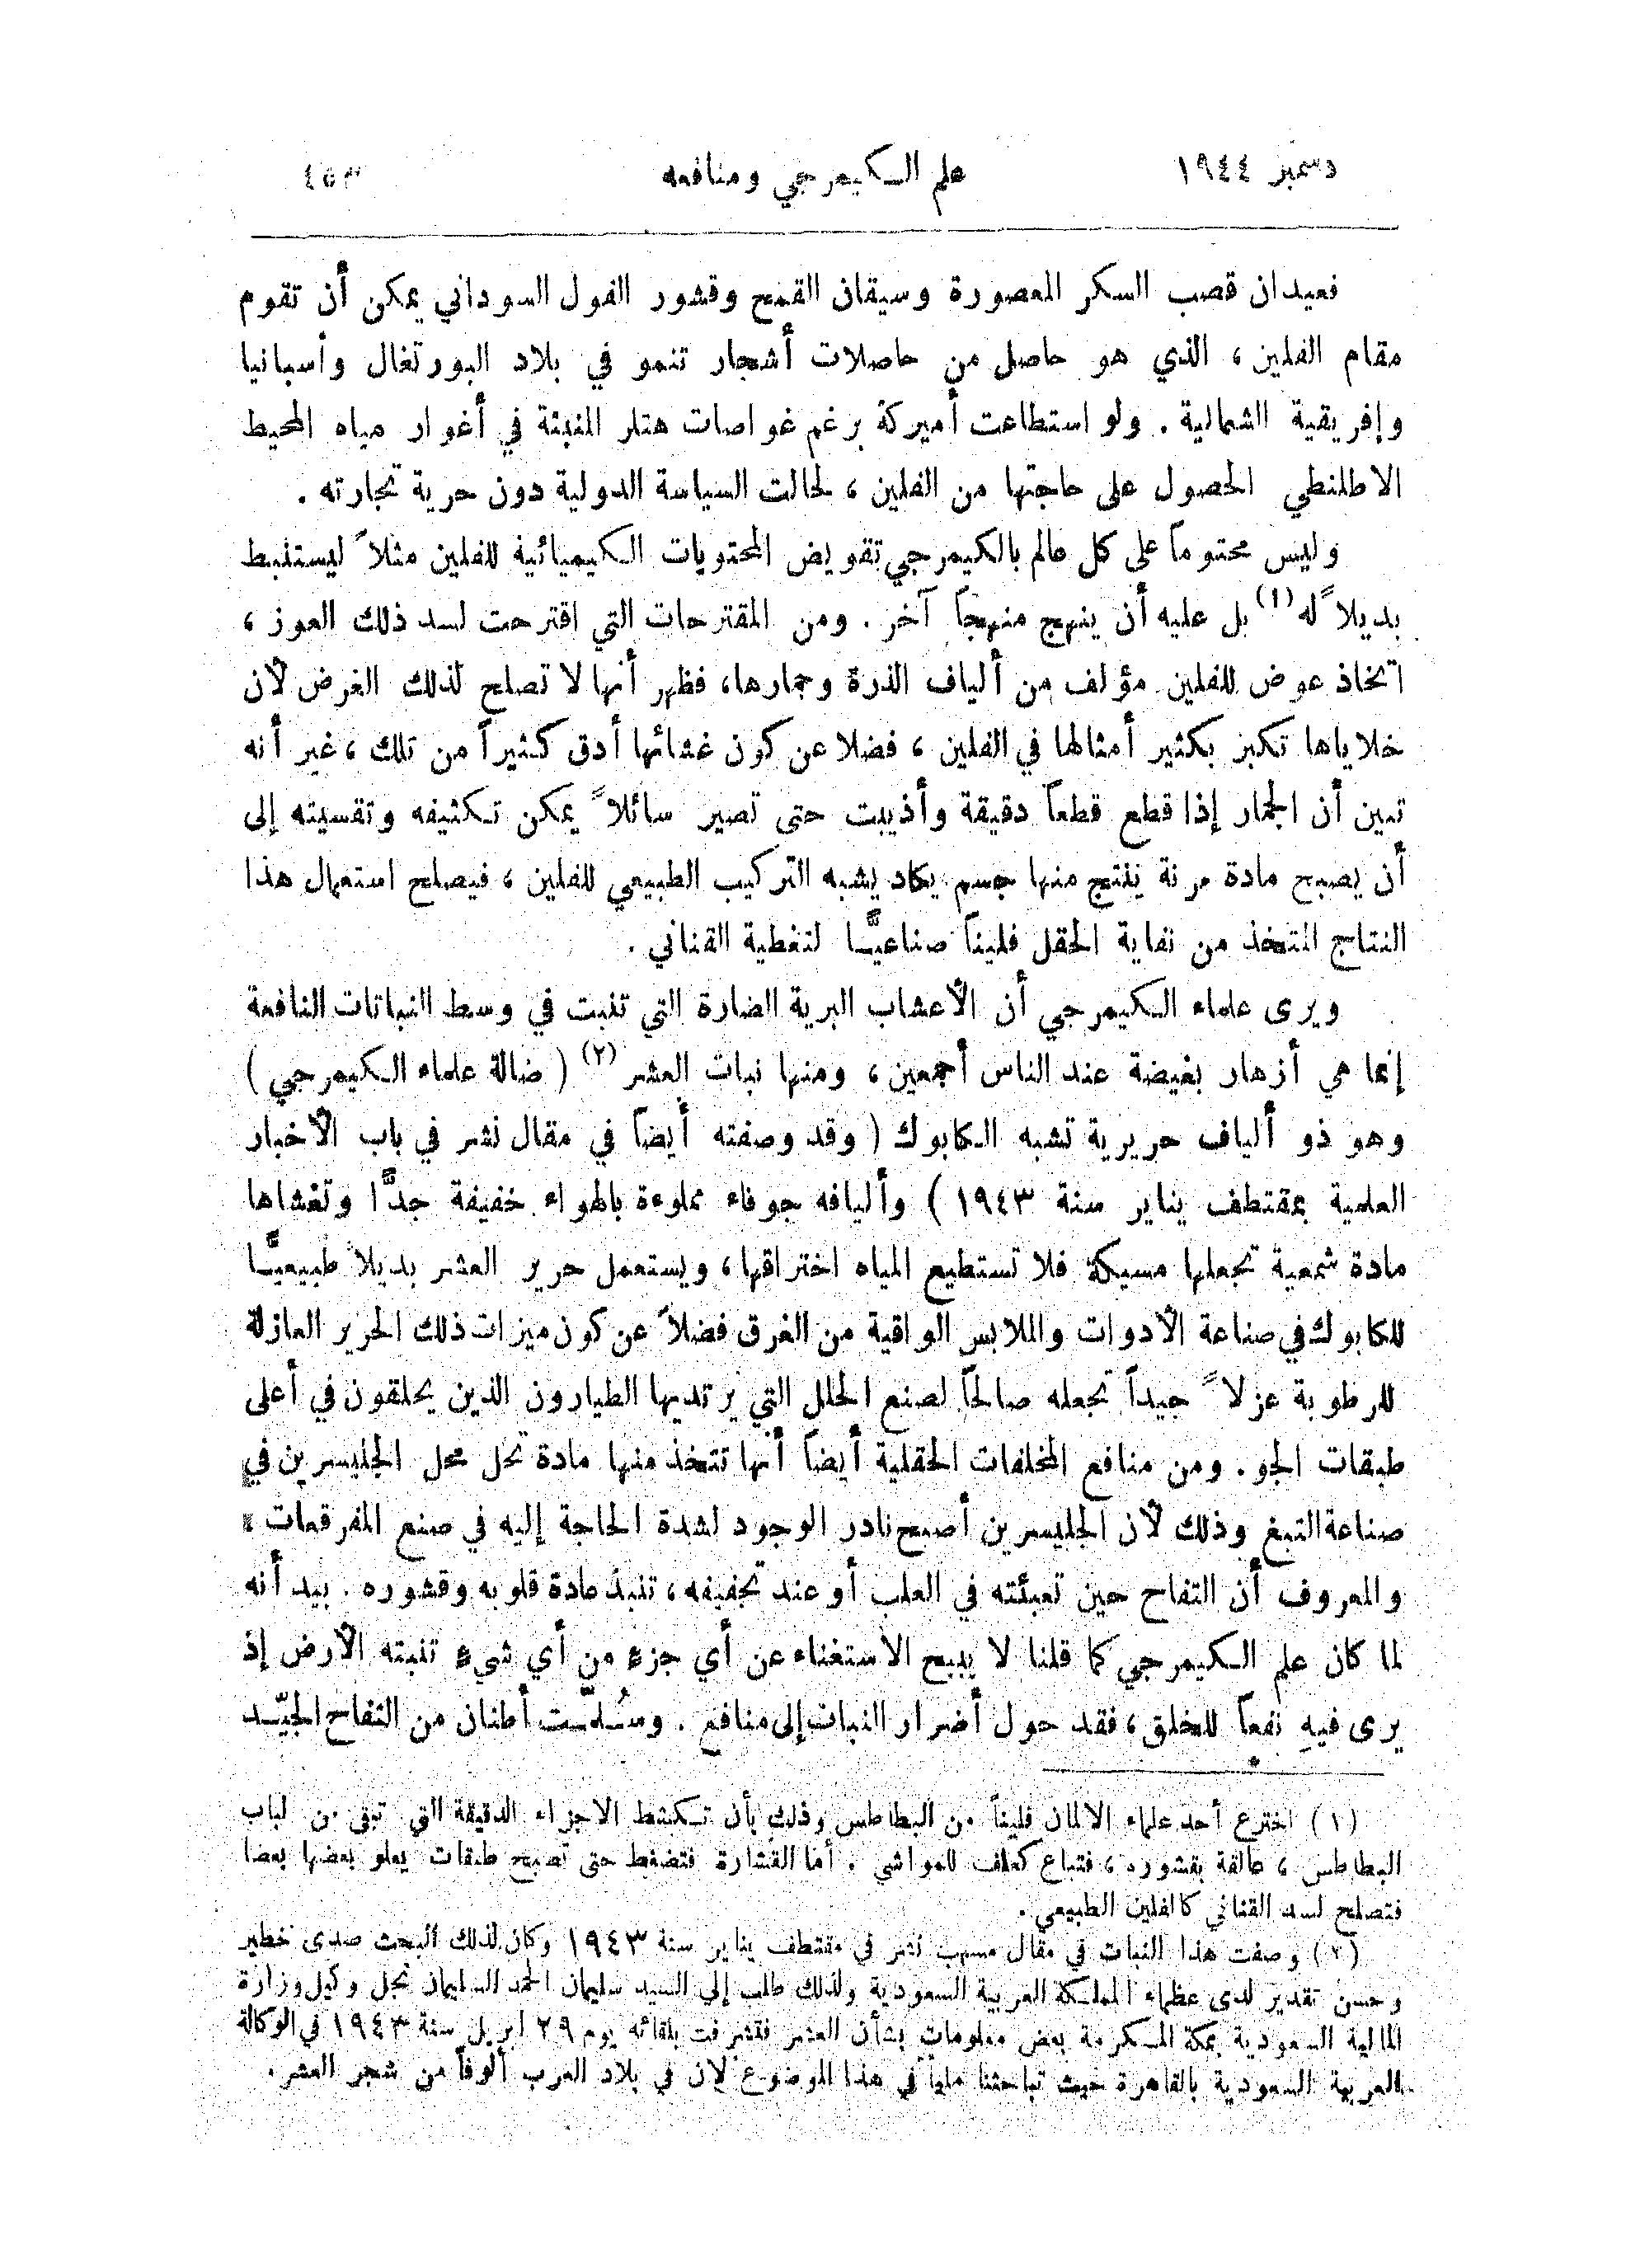 دسمبر ١٩٤٤
علم الكيمرجي ومنافعه
٤٥٣
فعيدان قصب السكر المعصورة وسيقان القمح وقشور الفول السوداني يمكن أن تقوم
مقام الفلين، الذي هو حاصل من حاصلات أشجار تنمو في بلاد البورتغال وأسبانيا
وإفريقية الشمالية. ولو استطاعت أميركة برغم غواصات هتلر المنبثة في أغوار مياه المحيط
الاطلنطي الحصول على حاجتها من الفلين، لحالت السياسة الدولية دون حرية تجارته.
وليس محتوماً على كل عالم بالكيمرجي تقويض المحتويات الكيميائية للفلين مثلاً ليستنبط
بديلاً له (١) بل عليه أن ينهج منهجاً آخر. ومن المقترحات التي اقترحت لسد ذلك العوز،
اتخاذ عوض للفلين مؤلف من ألياف الذرة وجمارها، فظهر أنها لا تصلح لذلك الغرض لأن
خلاياها تكبر بكثير أمثالها في الفلين، فضلا عن كون غشائها أدق كثيراً من تلك، غير أنه
تبين أن الجمار إذا قطع قطعاً دقيقة وأذيبت حتى تصير سائلاً يمكن تكثيفه وتقسيته إلى
أن يصبح مادة مرنة ينتج منها جسم يكاد يشبه التركيب الطبيعي للفلين، فيصلح استعمال هذا
النتاج المتخذ من نفاية الحقل فليناً صناعيًّا لتغطية القناني.
ويرى علماء الكيمرجي أن الأعشاب البرية الضارة التي تنبت في وسط النباتات النافعة
إنما هي أزهار بغيضة عند الناس أجمعين، ومنها نبات العشر (٢) (ضالة علماء الكيمرجي)
وهو ذو ألياف حريرية تشبه الكابوك (وقد وصفته أيضاً في مقال نشر في باب الأخبار
العلمية بمقتطف يناير سنة ١٩٤٣) وأليافه جوفاء مملوءة بالهواء خفيفة جدًّا وتغشاها
مادة شمعية تجعلها مسيكة فلا تستطيع المياه اختراقها، ويستعمل حرير العشر بديلاً طبيعيًّا
للكابوك في صناعة الأدوات والملابس الواقية من الغرق فضلاً عن كون ميزات ذلك الحرير العازلة
للرطوبة عزلاً جيداً تجعله صالحاً لصنع الحلل التي يرتديها الطيارون الذين يحلقون في أعلى
طبقات الجو. ومن منافع المخلفات الحقلية أيضاً أنها تتخذ منها مادة تحل محل الجليسرين في
صناعة التبغ وذلك لأن الجليسرين أصبح نادر الوجود لشدة الحاجة إليه في صنع المفرقعات.
والمعروف أن التفاح حين تعبئته في العلب أو عند تجفيفه، تنبذ عادة قلوبه وقشوره. بيد أنه
لما كان علم الكيمرجي كما قلنا لا يبيح الاستغناء عن أي جزء من أي شيء تنبته الأرض إذ
يرى فيهِ نفعاً للخلق، فقد حول أضرار النبات إلى منافع. وسُلّت أطنان من التفاح الجيّد
(١) اخترع أحد علماء الالمان فليناً من البطاطس وذلك بأن تكشط الاجزاء الدقيقة التي تبقى من لباب
البطاطس، عالقة بقشوره، فتباع كعلف للمواشي. أما القشارة فتضغط حتى تصبح طبقات يعلو بعضها بعضا
فتصلح لسد القناني كالفلين الطبيعي.
(٢) وصفت هذا النبات في مقال مسهب نشر في مقتطف يناير سنة ١٩٤٣ وكان لذلك البحث صدى خطير
وحسن تقدير لدى عظماء المملكة العربية السعودية ولذلك طلب إلي السيد سليمان الحمد السليمان نجل وكيل وزارة
المالية السعودية بمكة المكرمة بعض معلومات بشأن العشر فتشرفت بلقائه يوم ٢٩ ابريل سنة ١٩٤٣ في الوكالة
العربية السعودية بالقاهرة حيث تباحثنا مليا في هذا الموضوع لان في بلاد العرب ألوفاً من شجر العشر.